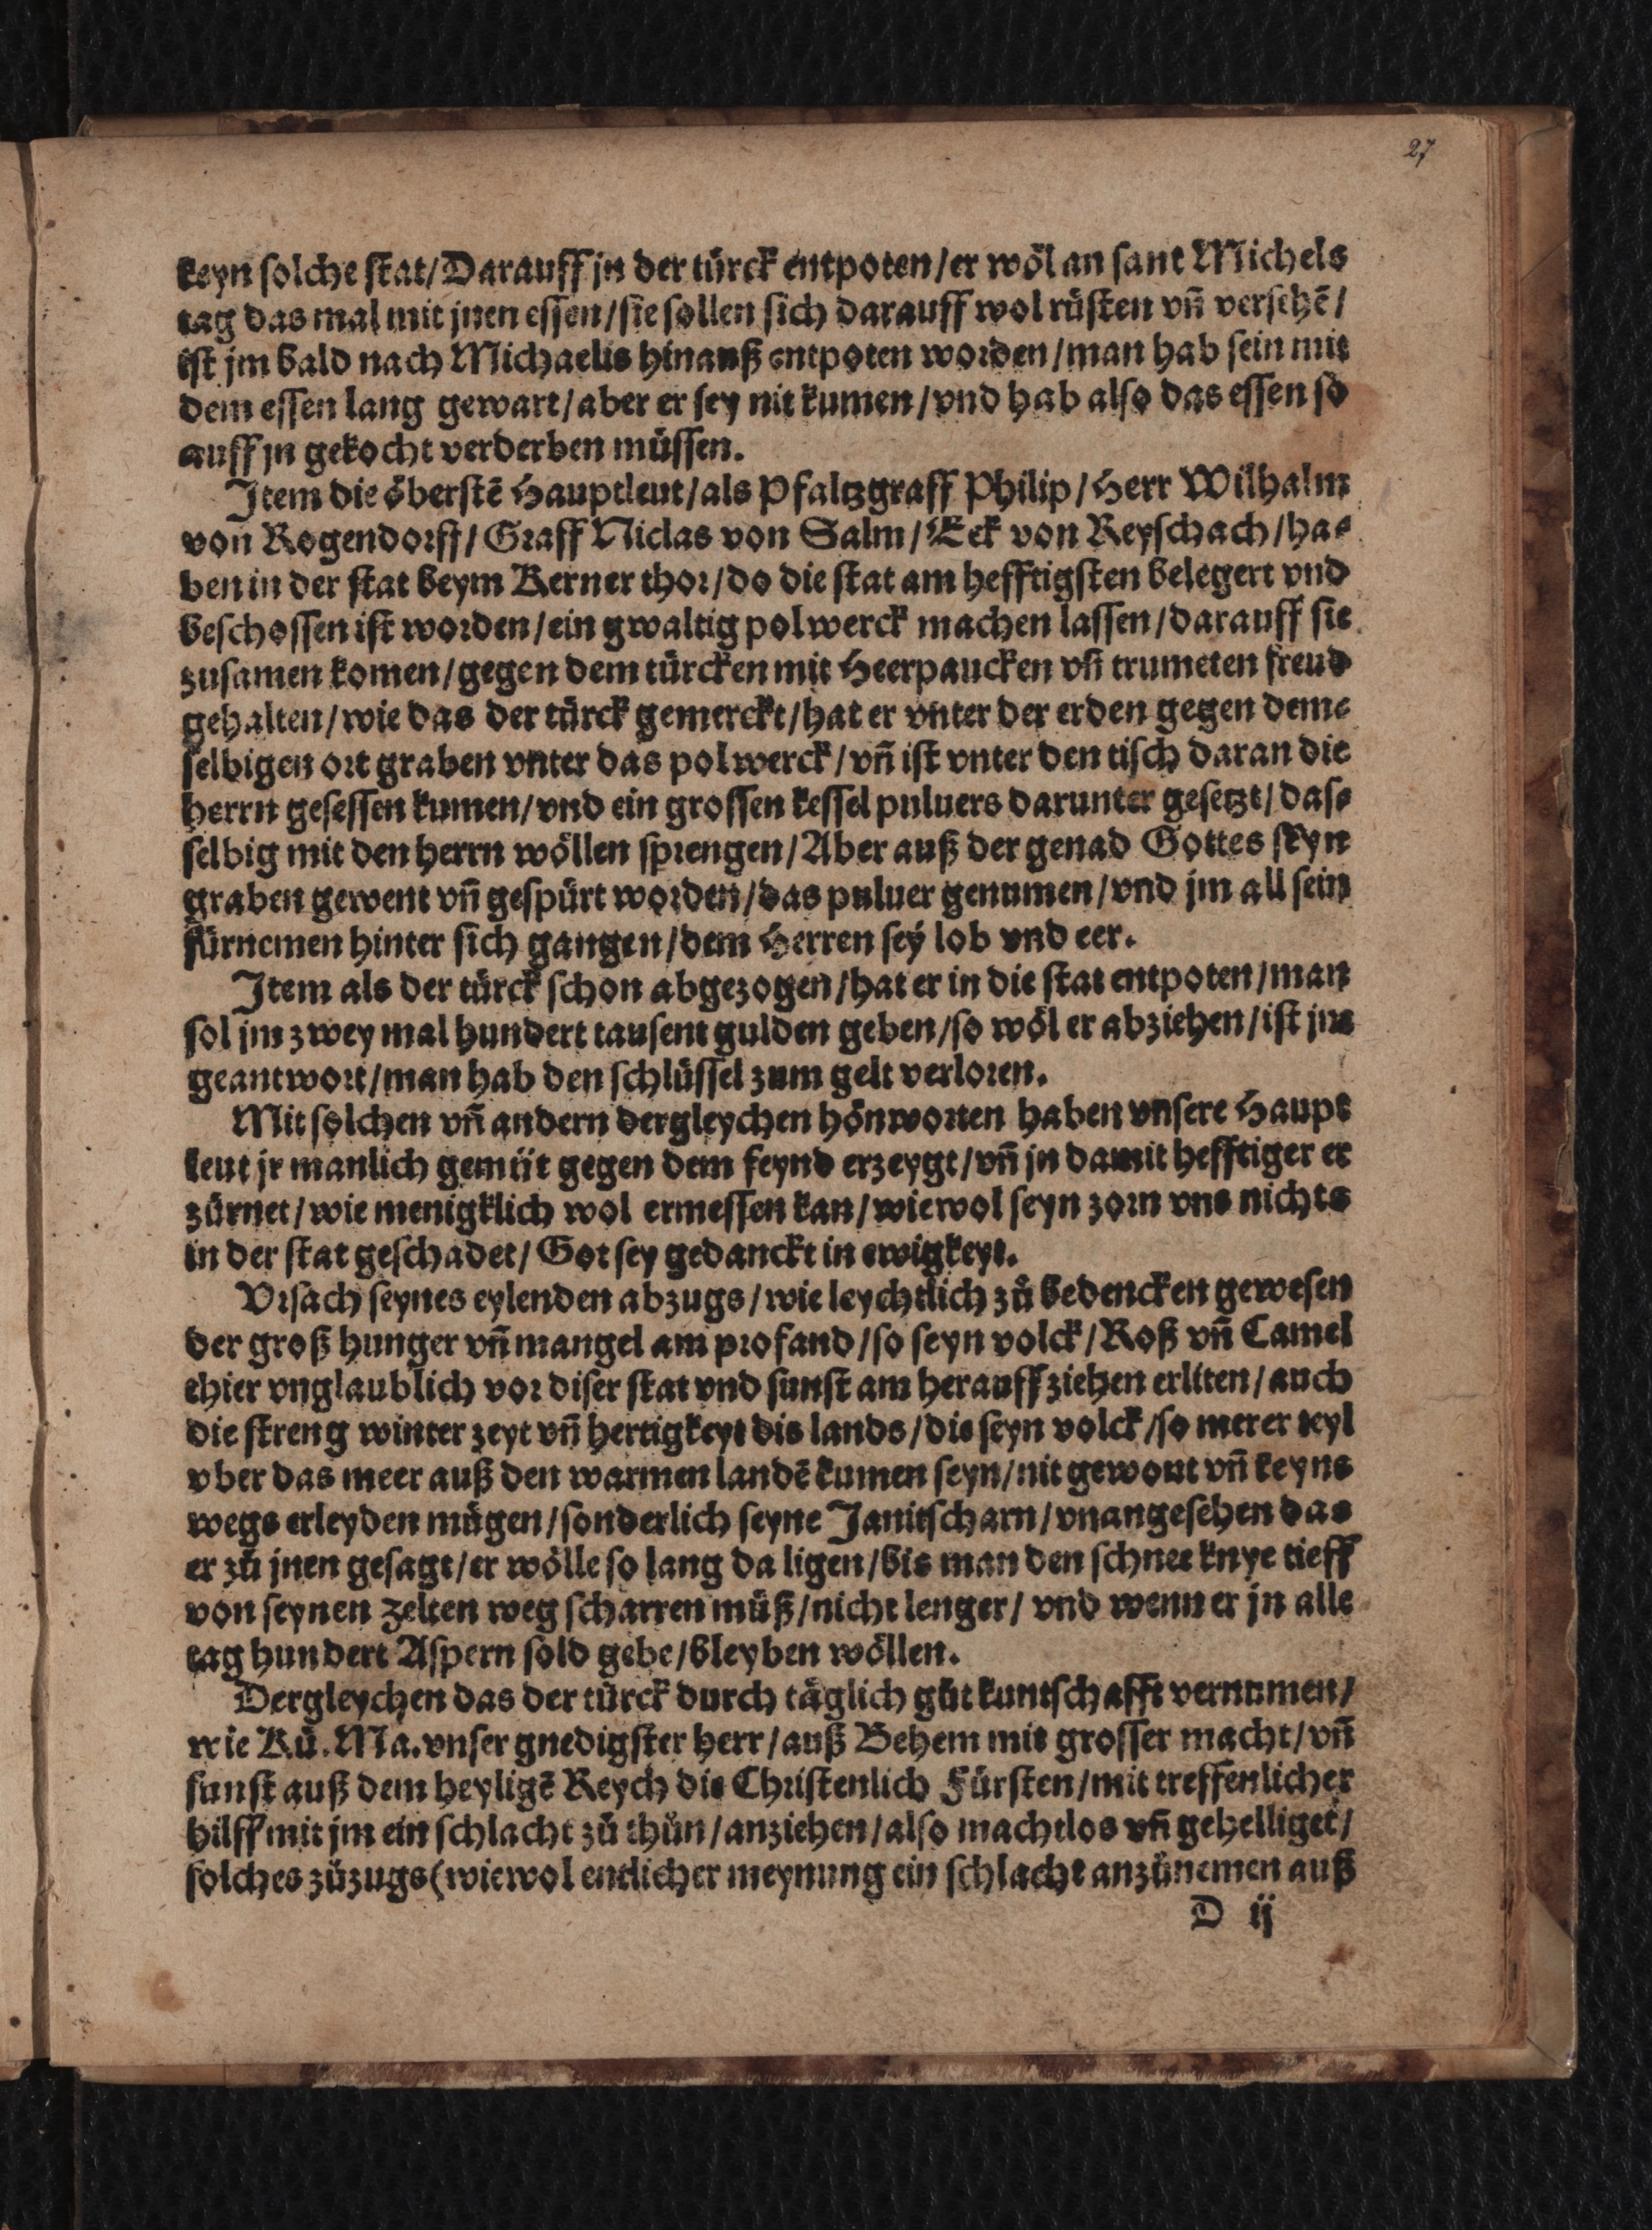 27
keyn solche stat/Darauff jn der türck entpoten/er wöl an sant Michels
tag das mal mit jnen essen/sie sollen sich darauff wol rüsten vñ versehẽ/
ist jm bald nach Michaelis hinauß entpoten worden/man hab sein mit
dem essen lang gewart/aber er sey nit kumen/vnd hab also das essen so
auff jn gekocht verderben müssen.
Item die öberstẽ Hauptleut/als Pfaltzgraff Philip/Herr Wilhalm
von Rogendorff/Graff Niclas von Salm/Eck von Reyschach/ha-
ben in der stat beym Kerner thor/do die stat am hefftigsten belegert vnd
beschossen ist worden/ein gwaltig polwerck machen lassen/darauff sie
zusamen komen/gegen dem türcken mit Heerpaucken vñ trumeten freud
gehalten/wie das der türck gemerckt/hat er vnter der erden gegen dem-
selbigen ort graben vnter das polwerck/vñ ist vnter den tisch daran die
herrn gesessen kumen/vnd ein grossen kessel puluers darunter gesetzt/das-
selbig mit den herrn wöllen sprengen/Aber auß der genad Gottes seyn
graben gewent vñ gespürt worden/das puluer genumen/vnd jm all sein
fürnemen hinter sich gangen/dem Herren sey lob vnd eer.
Item als der türck schon abgezogen/hat er in die stat entpoten/man
sol jm zwey mal hundert tausent gulden geben/so wöl er abziehen/ist jm
geantwort/man hab den schlüssel zum gelt verloren.
Mit solchen vñ andern dergleychen hönworten haben vnsere Haupt
leut jr manlich gemüt gegen dem feynd erzeygt/vñ jn damit hefftiger er
zürnet/wie menigklich wol ermessen kan/wiewol seyn zorn vns nichts
in der stat geschadet/Got sey gedanckt in ewigkeyt.
Vrsach seynes eylenden abzugs/wie leychtlich zů bedencken gewesen
der groß hunger vñ mangel am profand/so seyn volck/Roß vñ Camel
thier vnglaublich vor diser stat vnd sunst am herauffziehen erlitten/auch
die streng winter zeyt vñ hertigkeyt dis lands/die seyn volck/so merer teyl
vber das meer auß den warmen landẽ kumen seyn/nit gewont vñ keyns
wegs erleyden mügen/sonderlich seyne Janitscharn/vnangesehen das
er zů jnen gesagt/er wölle so lang da ligen/bis man den schnee knye tieff
von seynen zelten weg scharren müß/nicht lenger/vnd wenn er jn alle
tag hundert Aspern sold gebe/bleyben wöllen.
Dergleychen das der türck durch täglich gůt kuntschafft vernumen/
wie Kü. Ma. vnser gnedigster herr/auß Behem mit grosser macht/vñ
sunst auß dem heyligẽ Reych die Christenlich Fürsten/mit treffenlicher
hilff mit jm ein schlacht zů thůn/anziehen/also machtlos vñ gehelliget/
solches zůzugs(wiewol entlicher meynung ein schlacht anzůnemen auß
D ij